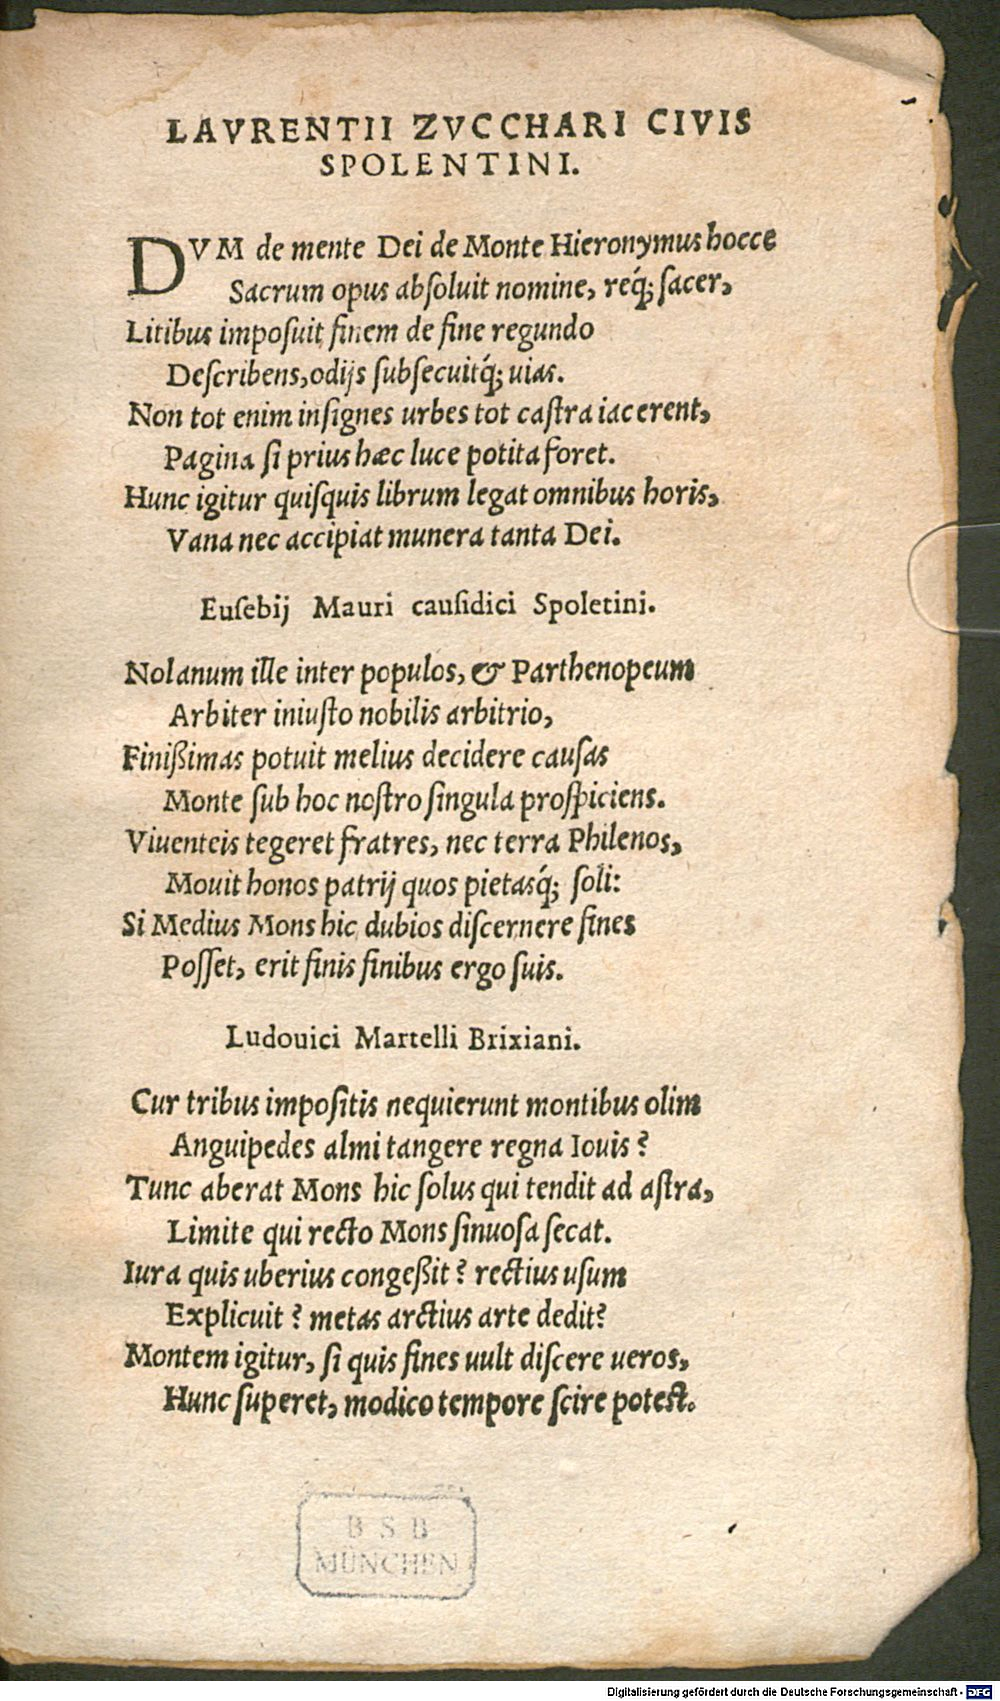 LAVRENTII ZVCCHARI CIVIS
SPOLENTINI.
DVM de mente Dei de Monte Hieronymus hocce
Sacrum opus abſoluit nomine, req́; ſacer,
Litibus impoſuit finem de fine regundo
Deſcribens, odijs ſubſecuitq́; uias.
Non tot enim inſignes urbes tot caſtra iacerent,
Pagina ſi prius hæc luce potita foret.
Hunc igitur quiſquis librum legat omnibus horis,
Vana nec accipiat munera tanta Dei.
Euſebij Mauri cauſidici Spoletini.
Nolanum ille inter populos, & Parthenopeum
Arbiter iniuſto nobilis arbitrio,
Finißimas potuit melius decidere cauſas
Monte ſub hoc noſtro ſingula proſpiciens.
Viuenteis tegeret fratres, nec terra Philenos,
Mouit honos patrij quos pietasq́; ſoli:
Si Medius Mons hic dubios diſcernere fines
Poſſet, erit finis finibus ergo ſuis.
Ludouici Martelli Brixiani.
Cur tribus impoſitis nequierunt montibus olim
Anguipedes almi tangere regna Iouis?
Tunc aberat Mons hic ſolus qui tendit ad aſtra,
Limite qui recto Mons ſinuoſa ſecat.
Iura quis uberius congeßit? rectius uſum
Explicuit? metas arctius arte dedit?
Montem igitur, ſi quis fines uult diſcere ueros,
Hunc ſuperet, modico tempore ſcire poteſt.
B S B
MÜNCHEN
Digitalisierung gefördert durch die Deutsche Forschungsgemeinschaft - DFG